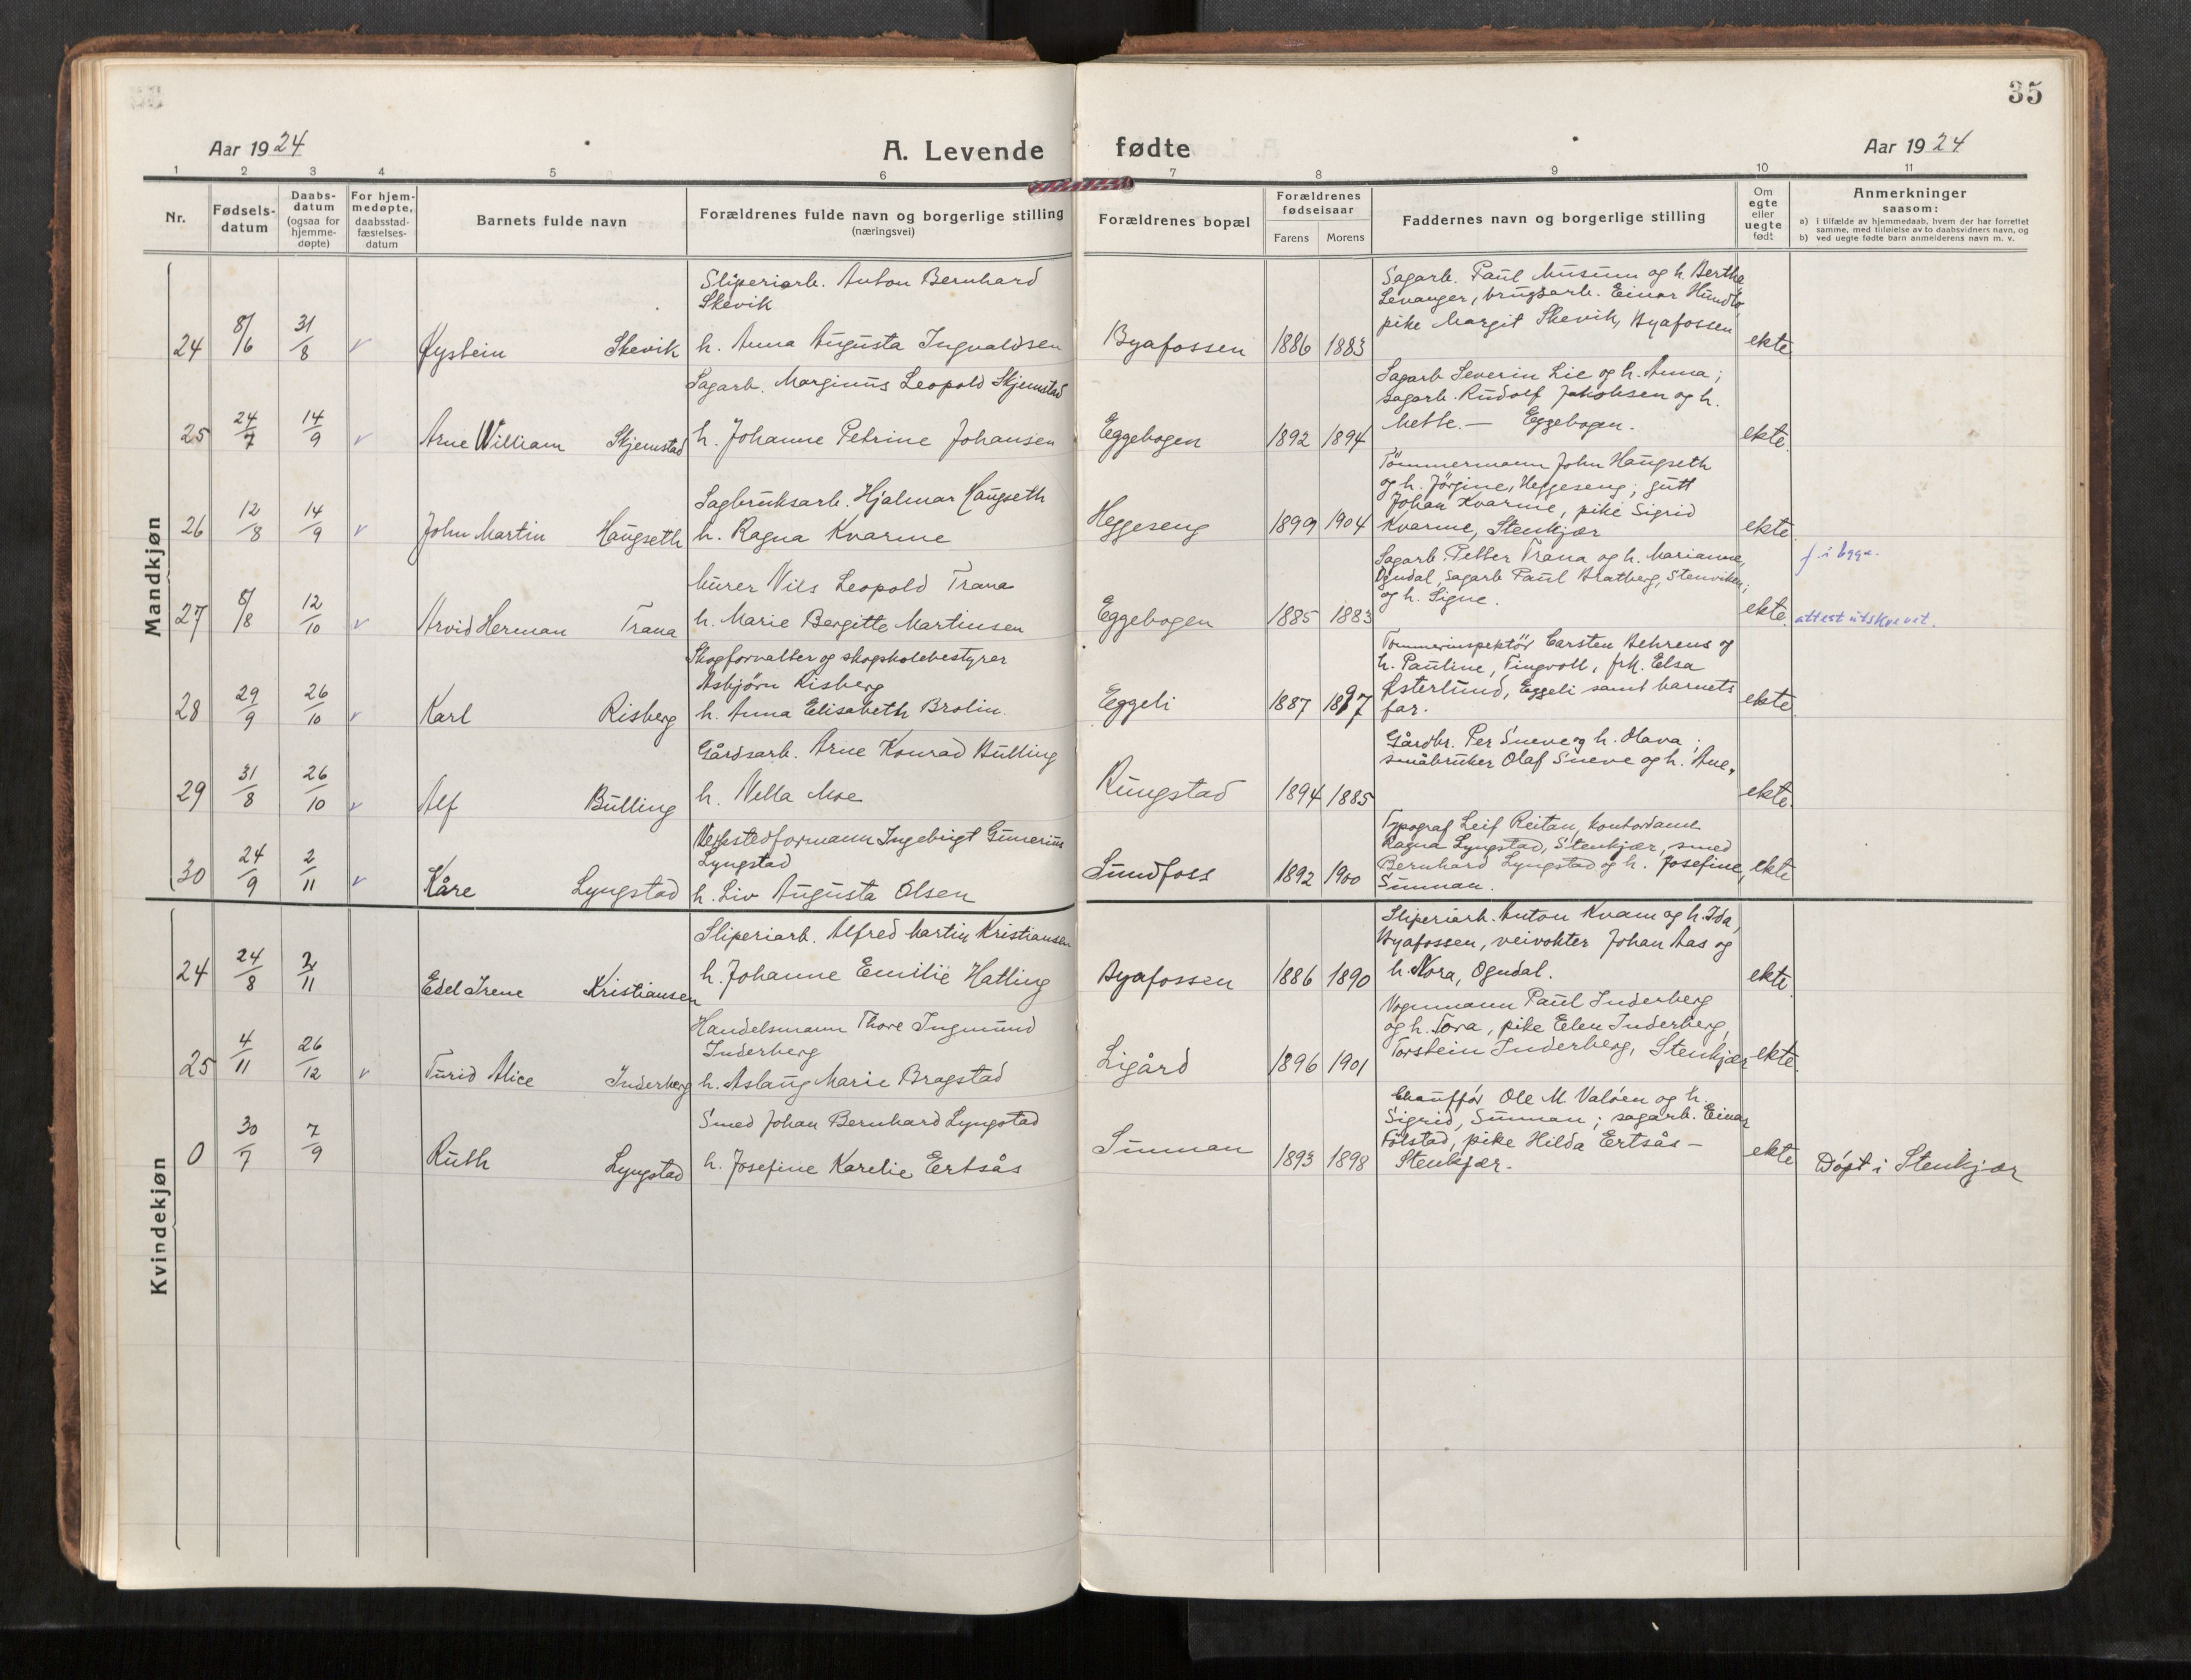 35
Aar 1924
A. Levende fødte
Aar 1924
1 2 3 4 5 6 7 8 9 10 11
Nr.
Fødsels-
datum
Daabs-
datum
(ogsaa for
hjemme-
døpte)
For hjem-
medøpte,
daabsstad-
fæstelses-
datum
Barnets fulde navn
Forældrenes fulde navn og borgerlige stilling
(næringsvei)
Forældrenes bopæl
Forældrenes
fødselsaar
Farens
Morens
Faddernes navn og borgerlige stilling
Om
egte
eller
uegte
født
Anmerkninger
saasom:
a) i tilfælde av hjemmedaab, hvem der har forrettet
samme, med tilføielse av to daabsvidners navn, og
b) ved uegte fødte barn anmelderens navn m. v.
Mandkjøn
24 8/6 31/8 v Øystein Skevik
Sliperiarb. Anton Bernhard
Skevik
h. Anna Augusta Ingvaldsen
Byafossen 1886 1883
Sagarb. Paul Musum og h. Berthe
Levanger, brugsarb. Einar
pike Margit Skevik, Byafossen
ekte
25 24/7 14/9 v Arne William Skjemstad
Sagarb. Marginus Leopold Skjemstad
h. Johanne Petrine Johansen
Eggebogen 1892 1894
Sagarb Severin Lie og h. Anna;
sagarb. Rudolf Jakobsen og h.
Mette. — Eggebogen.
ekte.
26 12/8 14/9 v John Martin Haugseth
Sagbruksarb. Hjalmar Haugseth
h. Ragna Kvarme
Heggeseng 1899 1904
Tömmermann John Haugseth
og h. Jörgine, Heggeseng; gutt
Johan Kvarme, pike Sigrid
Kvarme, Stenkjær
ekte
27 8/8 12/10 v Arvid Herman Trana
Murer Nils Leopold Trana
h. Marie Bergitte Martinsen
Eggebogen 1885 1883
Sagarb. Petter Trana og h. Marianne,
Ogndal, sagarb Paul Bratberg, Stenviken;
og h. Signe.
ekte.
f. i Egge.
attest utskrevet.
28 29/9 26/10 v Karl Risberg
Skogforvalter og skogskolebestyrer
Asbjörn Risberg
h. Anna Elisabeth Brolin.
Eggeli 1887 1897
Tømmerinspektör Carsten Behrens og
h. Pauline, Tingvoll, frk. Elsa
Østerlund, Eggeli samt barnets
far.
ekte
29 31/8 26/10 v Alf Bulling
Gårdsarb. Arne Konrad Bulling
h. Nella Moe
Rungstad 1894 1885
Gårdbr. Per Sneve og h. Olava;
småbruker Olaf Sneve og h. Ane.
ekte.
30 24/9 2/11 v Kåre Lyngstad
Verkstedformann Ingebrigt Gunerius
Lyngstad
h. Liv Augusta Olsen
Sundfoss 1892 1900
Typograf Leif Reitan, kontordame
Ragna Lyngstad, Stenkjær, smed
Bernhard Lyngstad og h. Josefine,
Sunnan.
ekte
Kvindekjøn
24 24/8 2/11 Edel Irene Kristiansen
Sliperiarb. Alfred Martin Kristiansen
h. Johanne Emilie Hatling
Byafossen 1886 1890
Sliperiarb. Anton Kvam og h. Ida,
Byafossen, veivokter Johan Aas og
h. Nora, Ogndal.
ekte.
25 4/11 26/12 v Turid Alice Inderberg
Handelsmann Thore Ingmund
Inderberg
h. Aslaug Marie Bragstad
Ligård 1896 1901
Vognmann Paul Inderberg
og h. Tora, pike Elen Inderberg,
Torstein Inderberg, Stenkjær
ekte.
0 30/7 7/9 Ruth Lyngstad
Smed Johan Bernhard Lyngstad
h. Josefine Karelie Eertsås
Sunnan 1893 1898
Chauffór Ole M. Valöen og h.
Sigrid, Sunnan; sagarb. Einar
Fölstad, pike Hilda Ertsås —
Stenkjær.
ekte
Döpt i Stenkjær